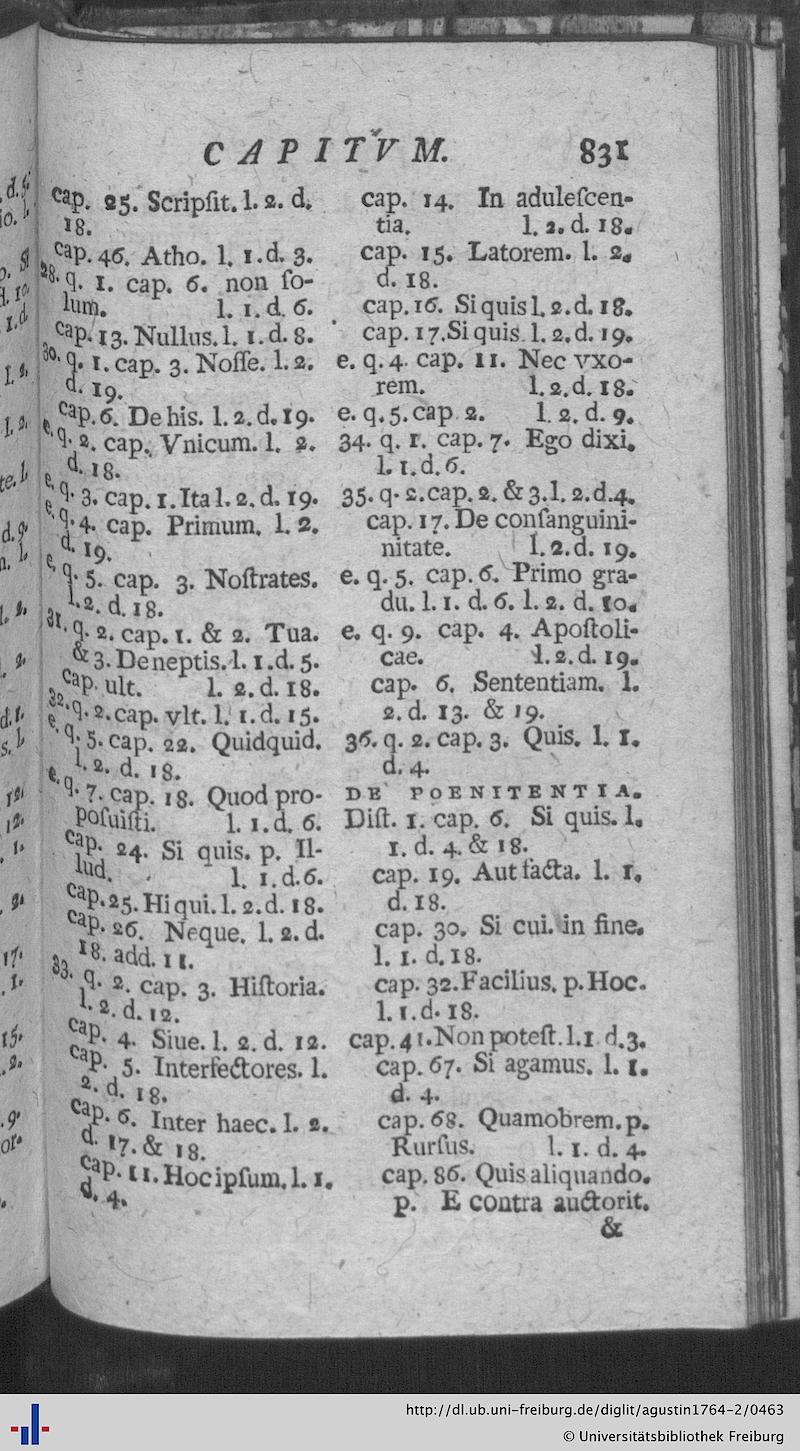 CAPITVM. 831
cap. 25. Scripſit. l. 2. d.
18.
cap. 46. Atho. l. 1. d. 3.
28. q. 1. cap. 6. non ſo-
lum. l. 1. d. 6.
cap. 13. Nullus. l. 1. d. 8.
30. q. 1. cap. 3. Noſſe. l. 2.
d. 19.
cap. 6. De his. l. 2. d. 19.
e. q. 2. cap. Vnicum. l. 2.
d. 18.
e. q. 3. cap. 1. Ita l. 2. d. 19.
e. q. 4. cap. Primum. l. 2.
d. 19.
e. q. 5. cap. 3. Noſtrates.
l. 2. d. 18.
31. q. 2. cap. 1. & 2. Tua.
& 3. De neptis. l. 1. d. 5.
cap. ult. l. 2. d. 18.
32. q. 2. cap. vlt. l. 1. d. 15.
e. q. 5. cap. 22. Quidquid.
l. 2. d. 18.
e. q. 7. cap. 18. Quod pro-
poſuiſti. l. 1. d. 6.
cap. 24. Si quis. p. Il-
lud. l. 1. d. 6.
cap. 25. Hi qui. l. 2. d. 18.
cap. 26. Neque. l. 2. d.
18. add. 11.
33. q. 2. cap. 3. Hiſtoria.
l. 2. d. 12.
cap. 4. Siue. l. 2. d. 12.
cap. 5. Interfectores. l.
2. d. 18.
cap. 6. Inter haec. l. 2.
d. 17. & 18.
cap. 11. Hoc ipſum. l. 1.
d. 4.
cap. 14. In aduleſcen-
tia. l. 2. d. 18.
cap. 15. Latorem. l. 2.
d. 18.
cap. 16. Si quis l. 2. d. 18.
cap. 17. Si quis l. 2. d. 19.
e. q. 4. cap. 11. Nec vxo-
rem. l. 2. d. 18.
e. q. 5. cap 2. l. 2. d. 9.
34. q. 1. cap. 7. Ego dixi.
l. 1. d. 6.
35. q. 2. cap. 2. & 3. l. 2. d. 4.
cap. 17. De conſanguini-
nitate. l. 2. d. 19.
e. q. 5. cap. 6. Primo gra-
du. l. 1. d. 6. l. 2. d. 10.
e. q. 9. cap. 4. Apoſtoli-
cae. l. 2. d. 19.
cap. 6. Sententiam. l.
2. d. 13. & 19.
36. q. 2. cap. 3. Quis. l. 1.
d. 4.
DE POENITENTIA.
Diſt. 1. cap. 6. Si quis. l.
1. d. 4. & 18.
cap. 19. Aut facta. l. 1.
d. 18.
cap. 30. Si cui. in fine.
l. 1. d. 18.
cap. 32. Facilius. p. Hoc.
l. 1. d. 18.
cap. 41. Non poteſt. l. 1 d. 3.
cap. 67. Si agamus. l. 1.
d. 4.
cap. 68. Quamobrem. p.
Rurſus. l. 1. d. 4.
cap. 86. Quis aliquando.
p. E contra auctorit.
&
http://dl.ub.uni-freiburg.de/diglit/agustin1764-2/0463
© Universitätsbibliothek Freiburg